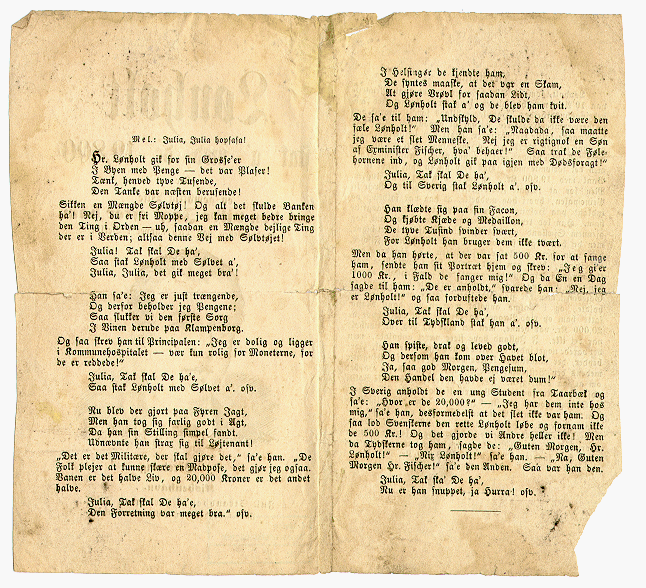 Mel.: Julia, Julia hopsasa!
Hr. Lønholt gik for sin Grosse'er
I Byen med Penge — det var Plaser!
Tænk, henved tyve Tusende,
Den Tanke var næsten berusende!
Sikken en Mængde Sølvtøj! Og alt det skulde Banken
ha'! Nej, du er fri Moppe, jeg kan meget bedre bringe
den Ting i Orden — uh, saadan en Mængde dejlige Ting
der er i Verden; altsaa denne Vej med Sølvtøjet!
Julia! Tak skal De ha',
Saa stak Lønholt med Sølvet a',
Julia, Julia, det gik meget bra'!
Han sa'e: Jeg er just trængende,
Og derfor beholder jeg Pengene;
Saa slukker vi den første Sorg
I Vinen derude paa Klampenborg.
Og saa skrev han til Principalen: „Jeg er dolig og ligger
i Kommunehospitalet — vær kun rolig for Moneterne, for
de er reddede!"
Julia, Tak skal De ha'e,
Saa stak Lønholt med Sølvet a'. osv.
Nu blev der gjort paa Fyren Jagt,
Men han tog sig farlig godt i Agt,
Da han sin Stilling simpel fandt.
Udnævnte han snart sig til Løjtenant!
„Det er det Militære, der skal gjøre det," sa'e han. „De
Folk plejer at kunne skære en Madpose, det gjør jeg ogsaa.
Banen er det halve Liv, og 20,000 Kroner er det andet
halve.
Julia, Tak skal De ha'e,
Den Forretning var meget bra." osv.
I Helsingør de kjendte ham,
De syntes maaske, at det var en Skam,
At gjøre Vrøvl for saadan Lidt,
Og Lønholt stak a' og de blev ham kvit.
De sa'e til ham: „Undskyld, De skulde da ikke være den
fæle Lønholt!" Men han sa'e: „Naadada, saa maatte
jeg være et slet Menneske. Nej jeg er rigtignok en Søn
af Exminister Fischer, hva' behaer!" Saa trak de Føle-
hornene ind, og Lønholt gik paa igjen med Dødsforagt!"
Julia, Tak skal De ha',
Og til Sverig stak Lønholt a'. osv.
Han klædte sig paa sin Facon,
Og kjøbte Kjæde og Medaillon,
De tyve Tusind svinder svært,
For Lønholt han bruger dem ikke tvært.
Men da han hørte, at der var sat 500 Kr. for at fange
ham, sendte han sit Portræt hjem og skrev: „Jeg gi'er
1000 Kr. i Fald De fanger mig!" Og da En en Dag
sagde til ham: „De er anholdt," svarede han: „Nej, jeg
er Lønholt!" og saa forduftede han.
Julia, Tak skal De ha',
Over til Tydskland stak han a'. osv.
Han spiste, drak og leved godt,
Og dersom han kom over Havet blot,
Ja, saa god Morgen, Pengesum,
Den Handel den havde ej været dum!"
I Sverig anholdt de en ung Student fra Taarbæk og
sa'e: „Hvor er de 20,000?" — „Jeg har dem inte hos
mig," sa'e han, desformedelst at det slet ikke var ham. Og
saa lod Svenskerne den rette Lønholt løbe og fornam ikke
de 500 Kr.! Og det gjorde vi Andre heller ikke! Men
da Tydskerne tog ham, sagde de: „Guten Morgen, Hr.
Lønholt!" — „Nix Lønholt!" sa'e han. — „Na, Guten
Morgen Hr. Fischer!" sa'e den Anden. Saa var han den.
Julia, Tak ska' De ha',
Nu er han snuppet, ja Hurra! osv.